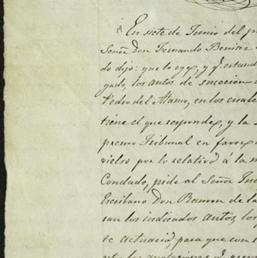 En siete de Junio del p
Señor Don Fernando Benitez
do dijo: que lo oye, y
gado, los autos de sucesion
Pedro del Alamo, en los cuales
tiene el que responde, y la
premo Tribunal en favor
cieles por lo relativo á la
Condado, pide al Señor Jue
Escribano Don Ramon de la
san los indicados autos, los
se actuaria para que con